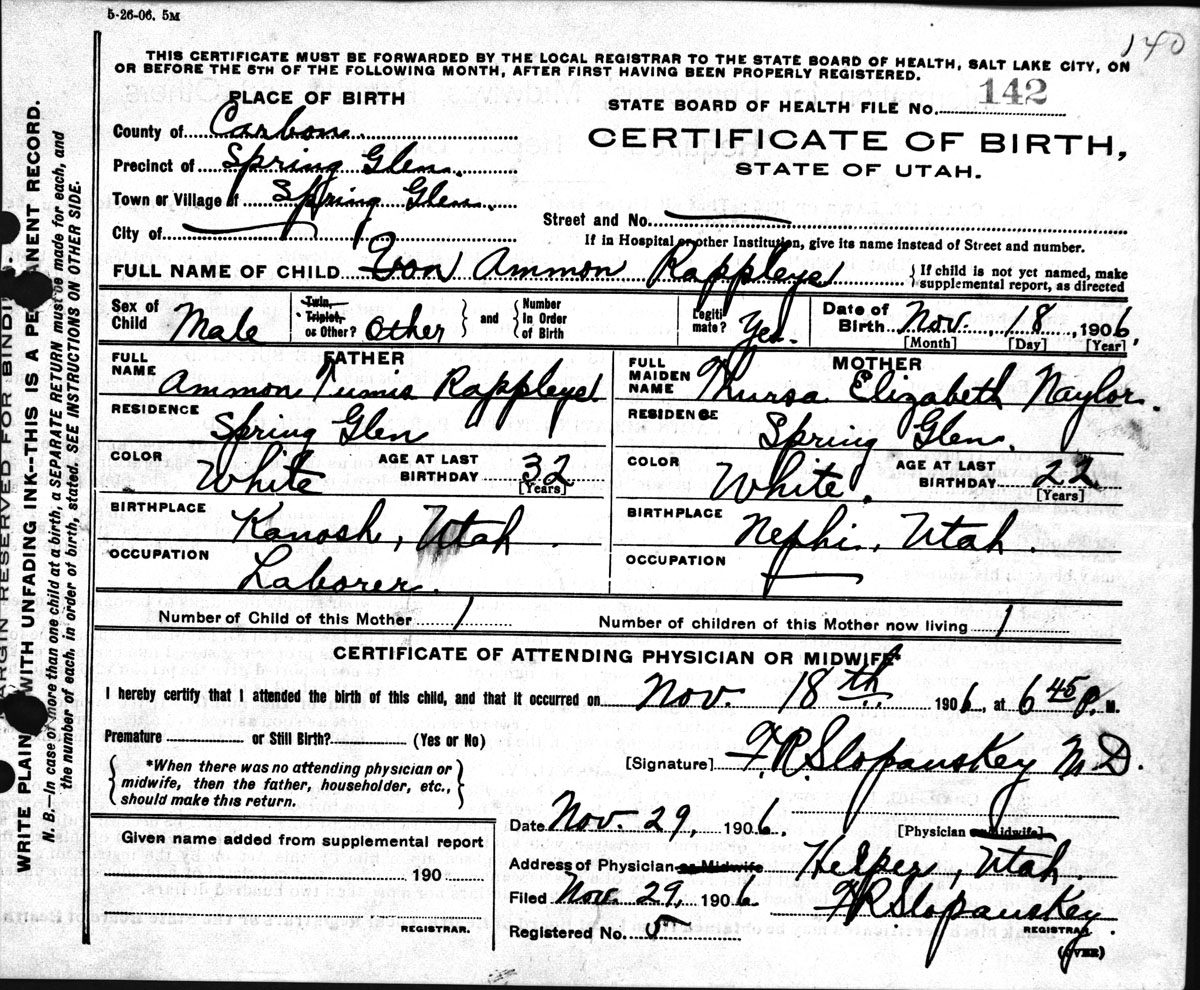 5-26-06. 5M
140
THIS CERTIFICATE MUST BE FORWARDED BY THE LOCAL REGISTRAR TO THE STATE BOARD OF HEALTH, SALT LAKE CITY, ON
OR BEFORE THE 5TH OF THE FOLLOWING MONTH, AFTER FIRST HAVING BEEN PROPERLY REGISTERED.
PLACE OF BIRTH
STATE BOARD OF HEALTH FILE No. 142
County of Carbon
CERTIFICATE OF BIRTH,
Precinct of Spring Glen.
STATE OF UTAH.
Town or Village of Spring Glen.
Street and No.
City of
If in Hospital or other Institution, give its name instead of Street and number.
FULL NAME OF CHILD Ammon Rappleye
{If child is not yet named, make
supplemental report, as directed
Sex of Child Male
Twin, Triplet, or Other? Other } and { Number in Order of Birth
Legitimate? Yes.
Date of Birth Nov. 18, 1906.
[Month] [Day] [Year]
FATHER
FULL NAME Ammon Tunis Rappleye
MOTHER
FULL MAIDEN NAME Thursa Elizabeth Naylor.
RESIDENCE Spring Glen
RESIDENCE Spring Glen.
COLOR White AGE AT LAST BIRTHDAY 32 [Years]
COLOR White. AGE AT LAST BIRTHDAY 22 [Years]
BIRTHPLACE Kanosh, Utah.
BIRTHPLACE Nephi, Utah.
OCCUPATION Laborer.
OCCUPATION
Number of Child of this Mother 1
Number of children of this Mother now living 1
CERTIFICATE OF ATTENDING PHYSICIAN OR MIDWIFE*
I hereby certify that I attended the birth of this child, and that it occurred on Nov. 18th. 1906, at 6 45 P. M.
Premature or Still Birth? (Yes or No)
[Signature] F.R. Slopanskey M D.
*When there was no attending physician or
midwife, then the father, householder, etc.,
should make this return.
Date Nov. 29, 1906.
[Physician or Midwife]
Given name added from supplemental report
190
REGISTRAR.
Address of Physician or Midwife Helper, Utah.
Filed Nov. 29, 1906 F R Slopanskey.
REGISTRAR.
Registered No. 5
(OVER)
MARGIN RESERVED FOR BINDING.
WRITE PLAINLY WITH UNFADING INK--THIS IS A PERMANENT RECORD.
N. B.—In case of more than one child at a birth, a SEPARATE RETURN must be made for each, and
the number of each, in order of birth, stated. SEE INSTRUCTIONS ON OTHER SIDE.